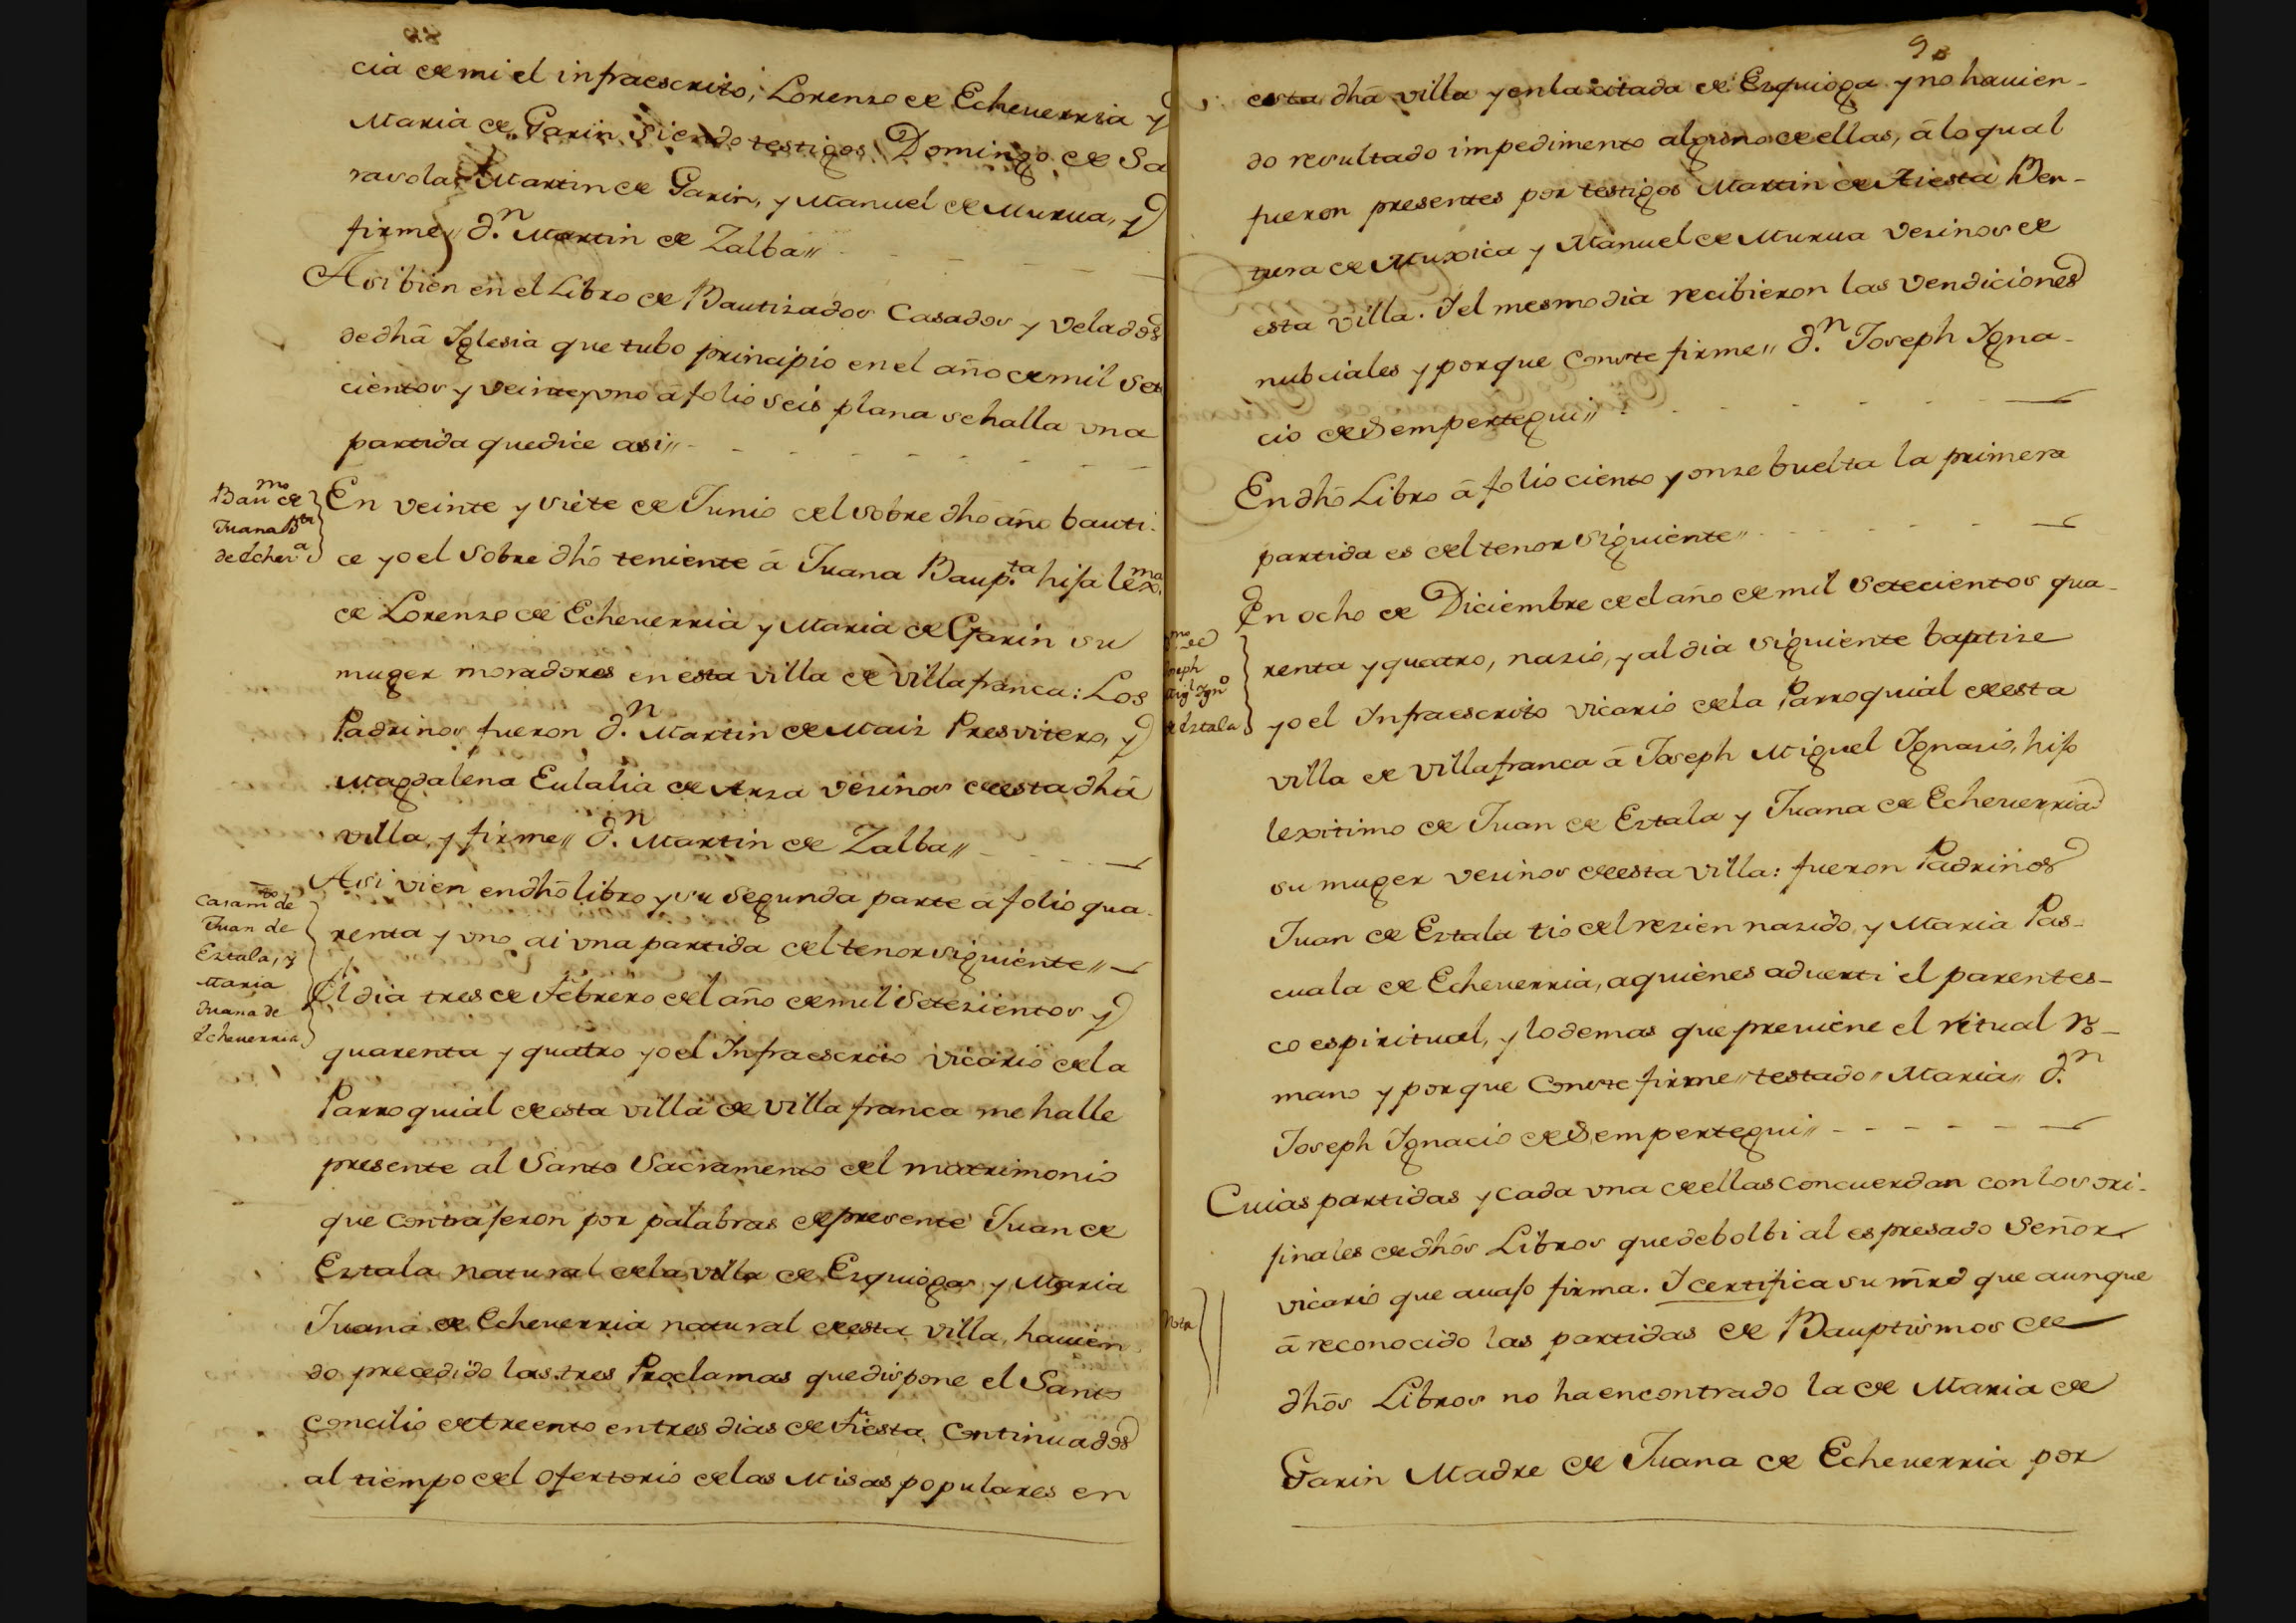 cia de mi el infraescrito, Lorenzo de Echeuerria y
Maria de Garin siendo testigos Domingo de Sa
rasola Martin de Garin, y Manuel de Murua, y
firme〃 D.ⁿ Martin de Zalba〃
Asi bien en el Libro de Bautizados Casados y Velados
de dhã Yglesia que tubo principio en el año de mil set
cientos y veinte y vno â folio seis plana se halla vna
partida que dice asi〃
Bau^mo de
Juana B^ta
de Echev^a
En veinte y siete de Junio del sobre dhõ año bauti-
ce yo el sobre dhõ teniente â Juana Baup.^ta hija lex^ma
de Lorenzo de Echeuerria y Maria de Garin su
muger moradores en esta villa de villafranca: Los
Padrinos fueron D.ⁿ Martin de Maiz Presvitero, y
Magdalena Eulalia de Arza vezinos de esta dhã
villa, y firme〃 D.ⁿ Martin de Zalba〃
Asi vien en dhõ libro y su segunda parte â folio qua-
renta y vno ai vna partida del tenor siguiente〃
Casam^to de
Juan de
Eztala, y
Maria
Juana de
Echeuerria
El dia tres de febrero del año de mil Setezientos y
quarenta y quatro yo el Infraescrito vicario de la
Parroquial de esta villa de villa franca me halle
presente al Santo Sacramento del matrimonio
que contrajeron por palabras de presente Juan de
Eztala natural de la villa de Ezquioga y Maria
Juana de Echeuerria natural de esta villa, hauien
do precedido las tres Proclamas que dispone el Santo
Concilio de treento en tres dias de fiesta Continuados
al tiempo del ofertorio de las Misas populares en
9
esta dhã villa y en la citada de Ezquioga y no hauien-
do resultado impedimento alguno de ellas, â lo qual
fueron presentes por testigos Martin de Aiesta Ben-
tura de Muxica y Manuel de Murua vezinos de
esta villa. Y el mesmo dia recibieron las vendiciones
nubciales y por que Conste firme〃 D.ⁿ Joseph Ygna-
cio de Sempertegui〃
En dhõ Libro â folio ciento y onze buelta la primera
partida es del tenor siguiente〃
^mo de
seph
Mig^l Ygn^o
de Eztala
En ocho de Diciembre de el año de mil setecientos qua-
renta y quatro, nazio, y al dia siguiente baptize
yo el Infraescrito vicario de la Parroquial de esta
villa de villafranca â Joseph Miguel Ygnazio, hijo
lexitimo de Juan de Eztala y Juana de Echeuerria
su muger vezinos de esta villa: fueron Padrinos
Juan de Eztala tio del rezien nazido, y Maria Pas-
cuala de Echeuerria, a quienes aduerti el parentes-
co espiritual, y lo demas que preuiene el ritual Ro-
mano y por que Conste firme〃 testado〃 Maria〃 D.ⁿ
Joseph Ygnacio de Sempertegui〃
Cuias partidas y cada vna de ellas concuerdan con los ori-
jinales de dhõs Libros que debolbi al espresado Señor
vicario que auajo firma. Y certifica su mrd que aunque
Nota
â reconocido las partidas de Bauptismos de
dhõs Libros no ha encontrado la de Maria de
Garin Madre de Juana de Echeuerria por